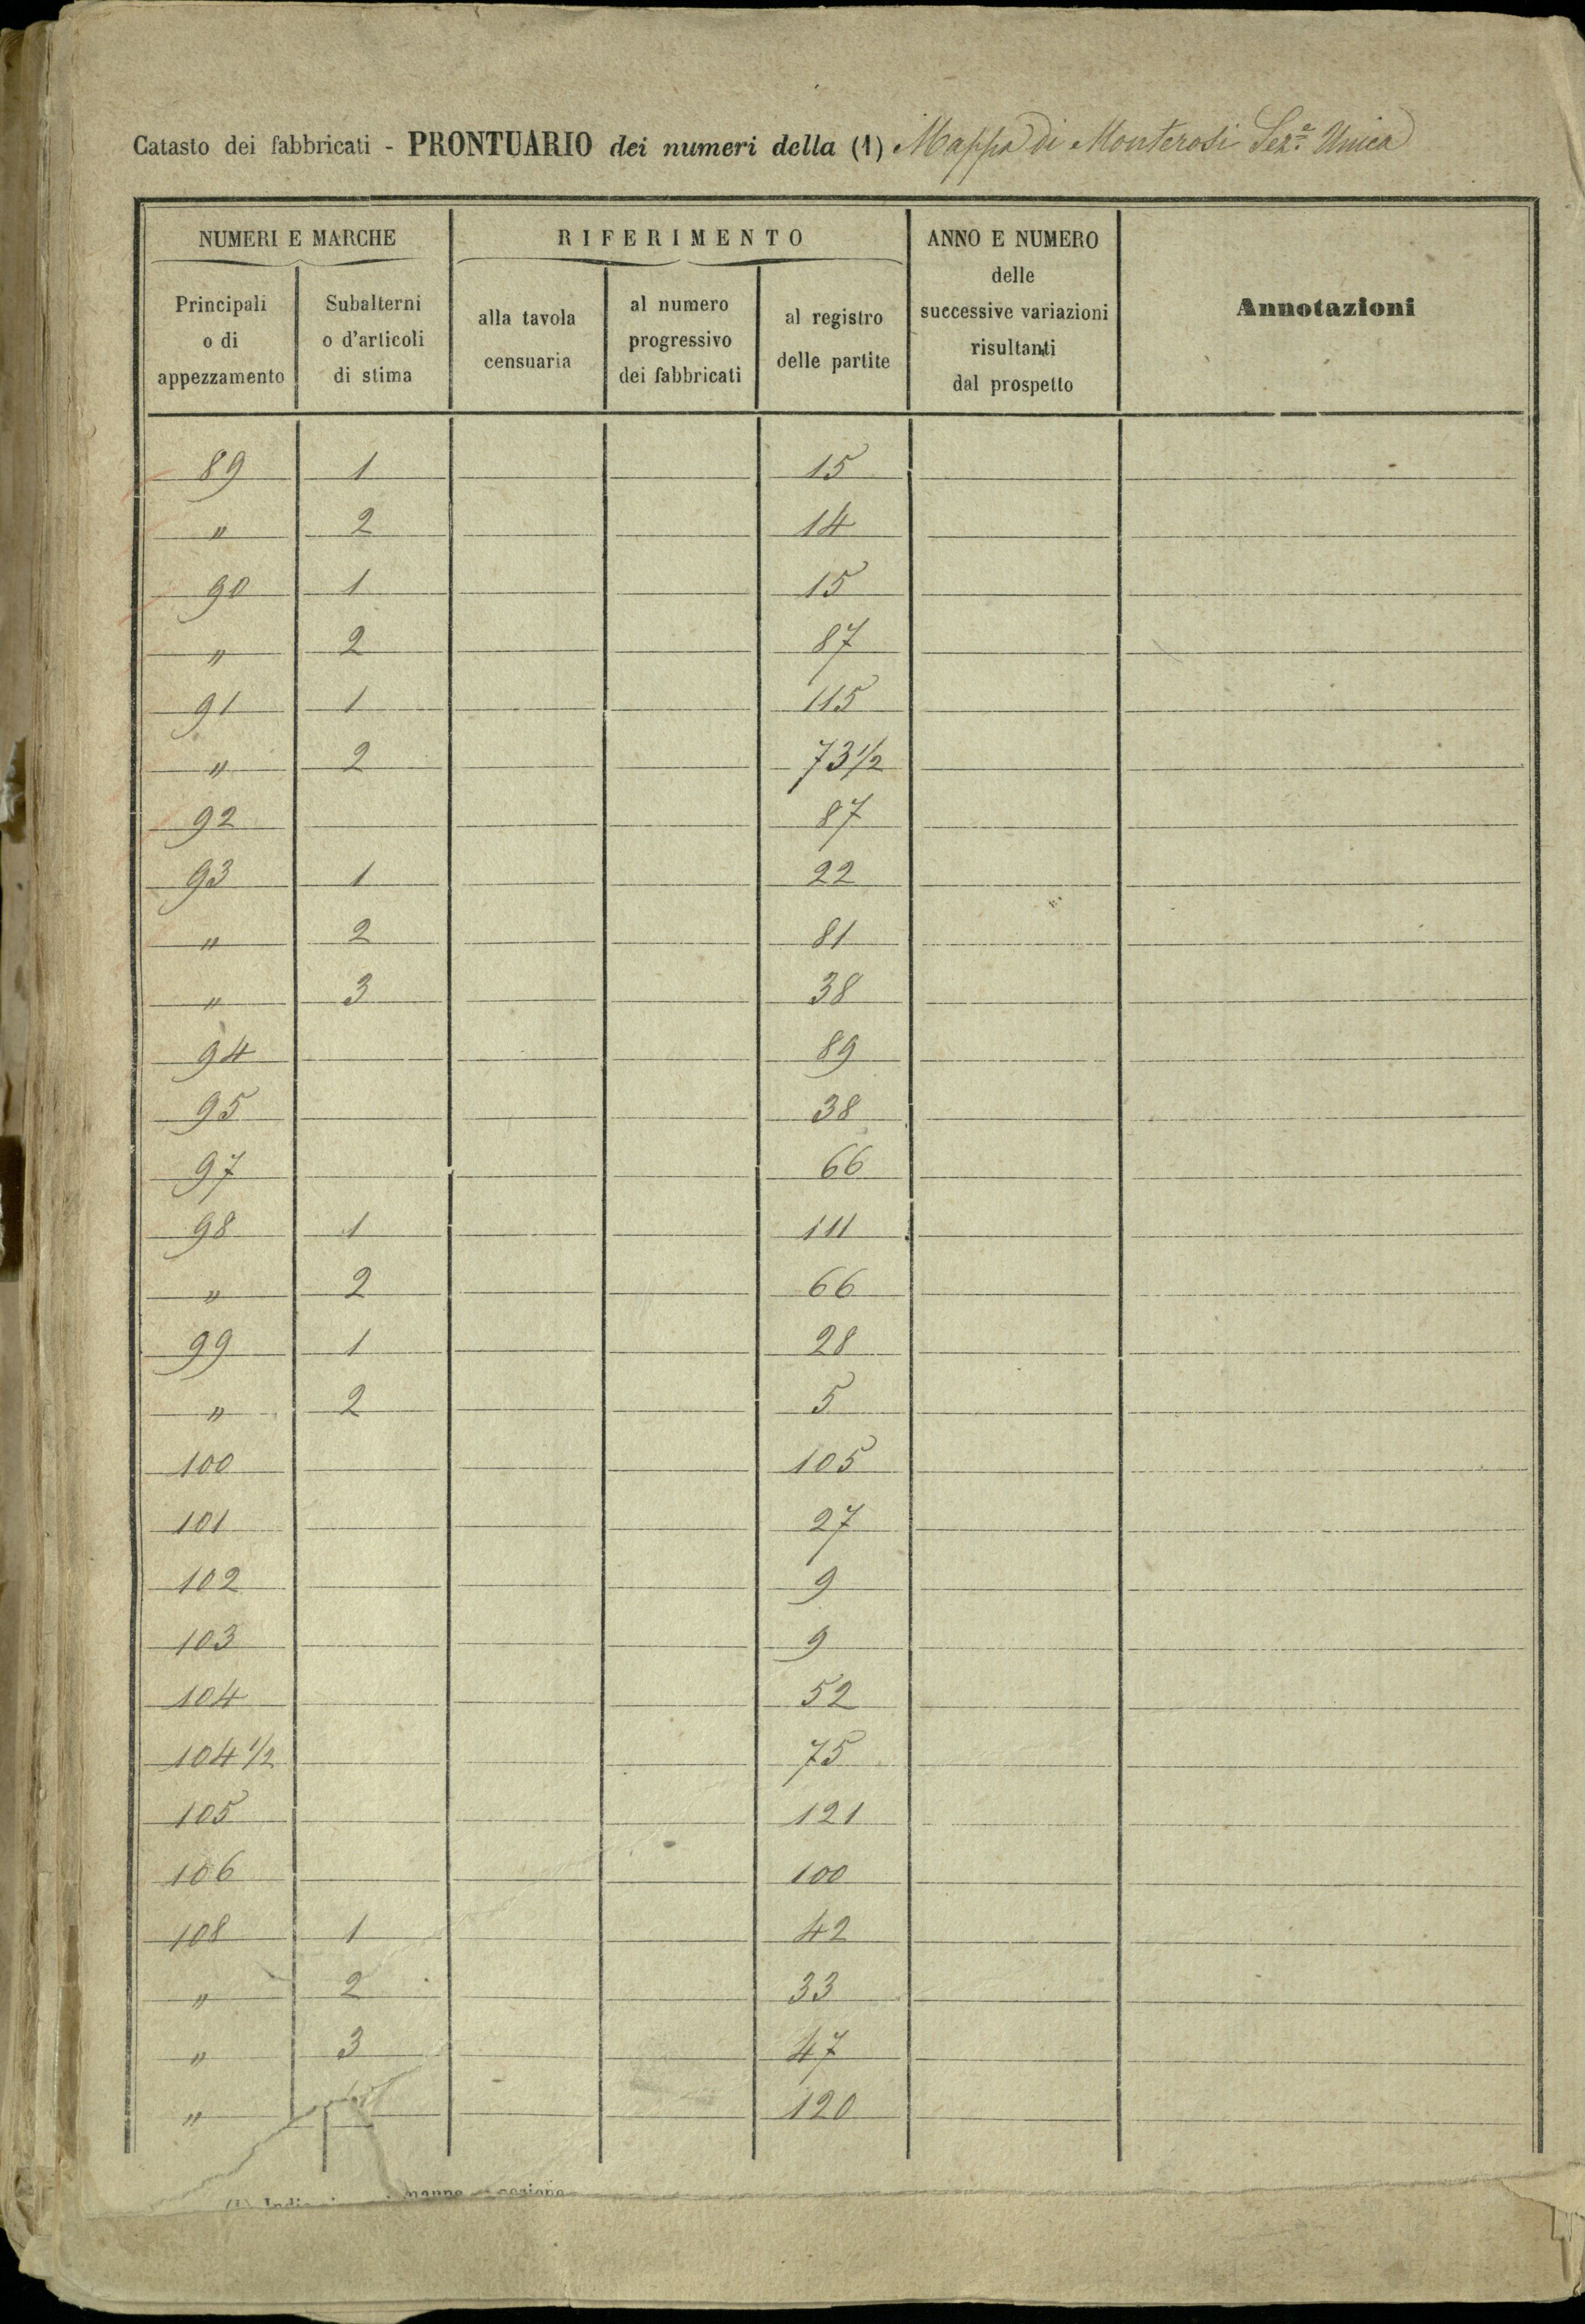 Catasto dei fabbricati - PRONTUARIO dei numeri della (1) Mappa di Monterosi Sez.e Unica
NUMERI E MARCHE
RIFERIMENTO
ANNO E NUMERO
delle
successive variazioni
risultanti
dal prospetto
Annotazioni
Principali
o di
appezzamento
Subalterni
o d'articoli
di stima
alla tavola
censuaria
al numero
progressivo
dei fabbricati
al registro
delle partite
89 1 15
" 2 14
90 1 15
" 2 87
91 1 115
" 2 73 1/2
92 87
93 1 22
" 2 81
" 3 38
94 89
95 38
97 66
98 1 111
" 2 66
99 1 28
" 2 5
100 105
101 27
102 9
103 9
104 52
104 1/2 75
105 121
106 100
108 1 42
" 2 33
" 3 47
" 120